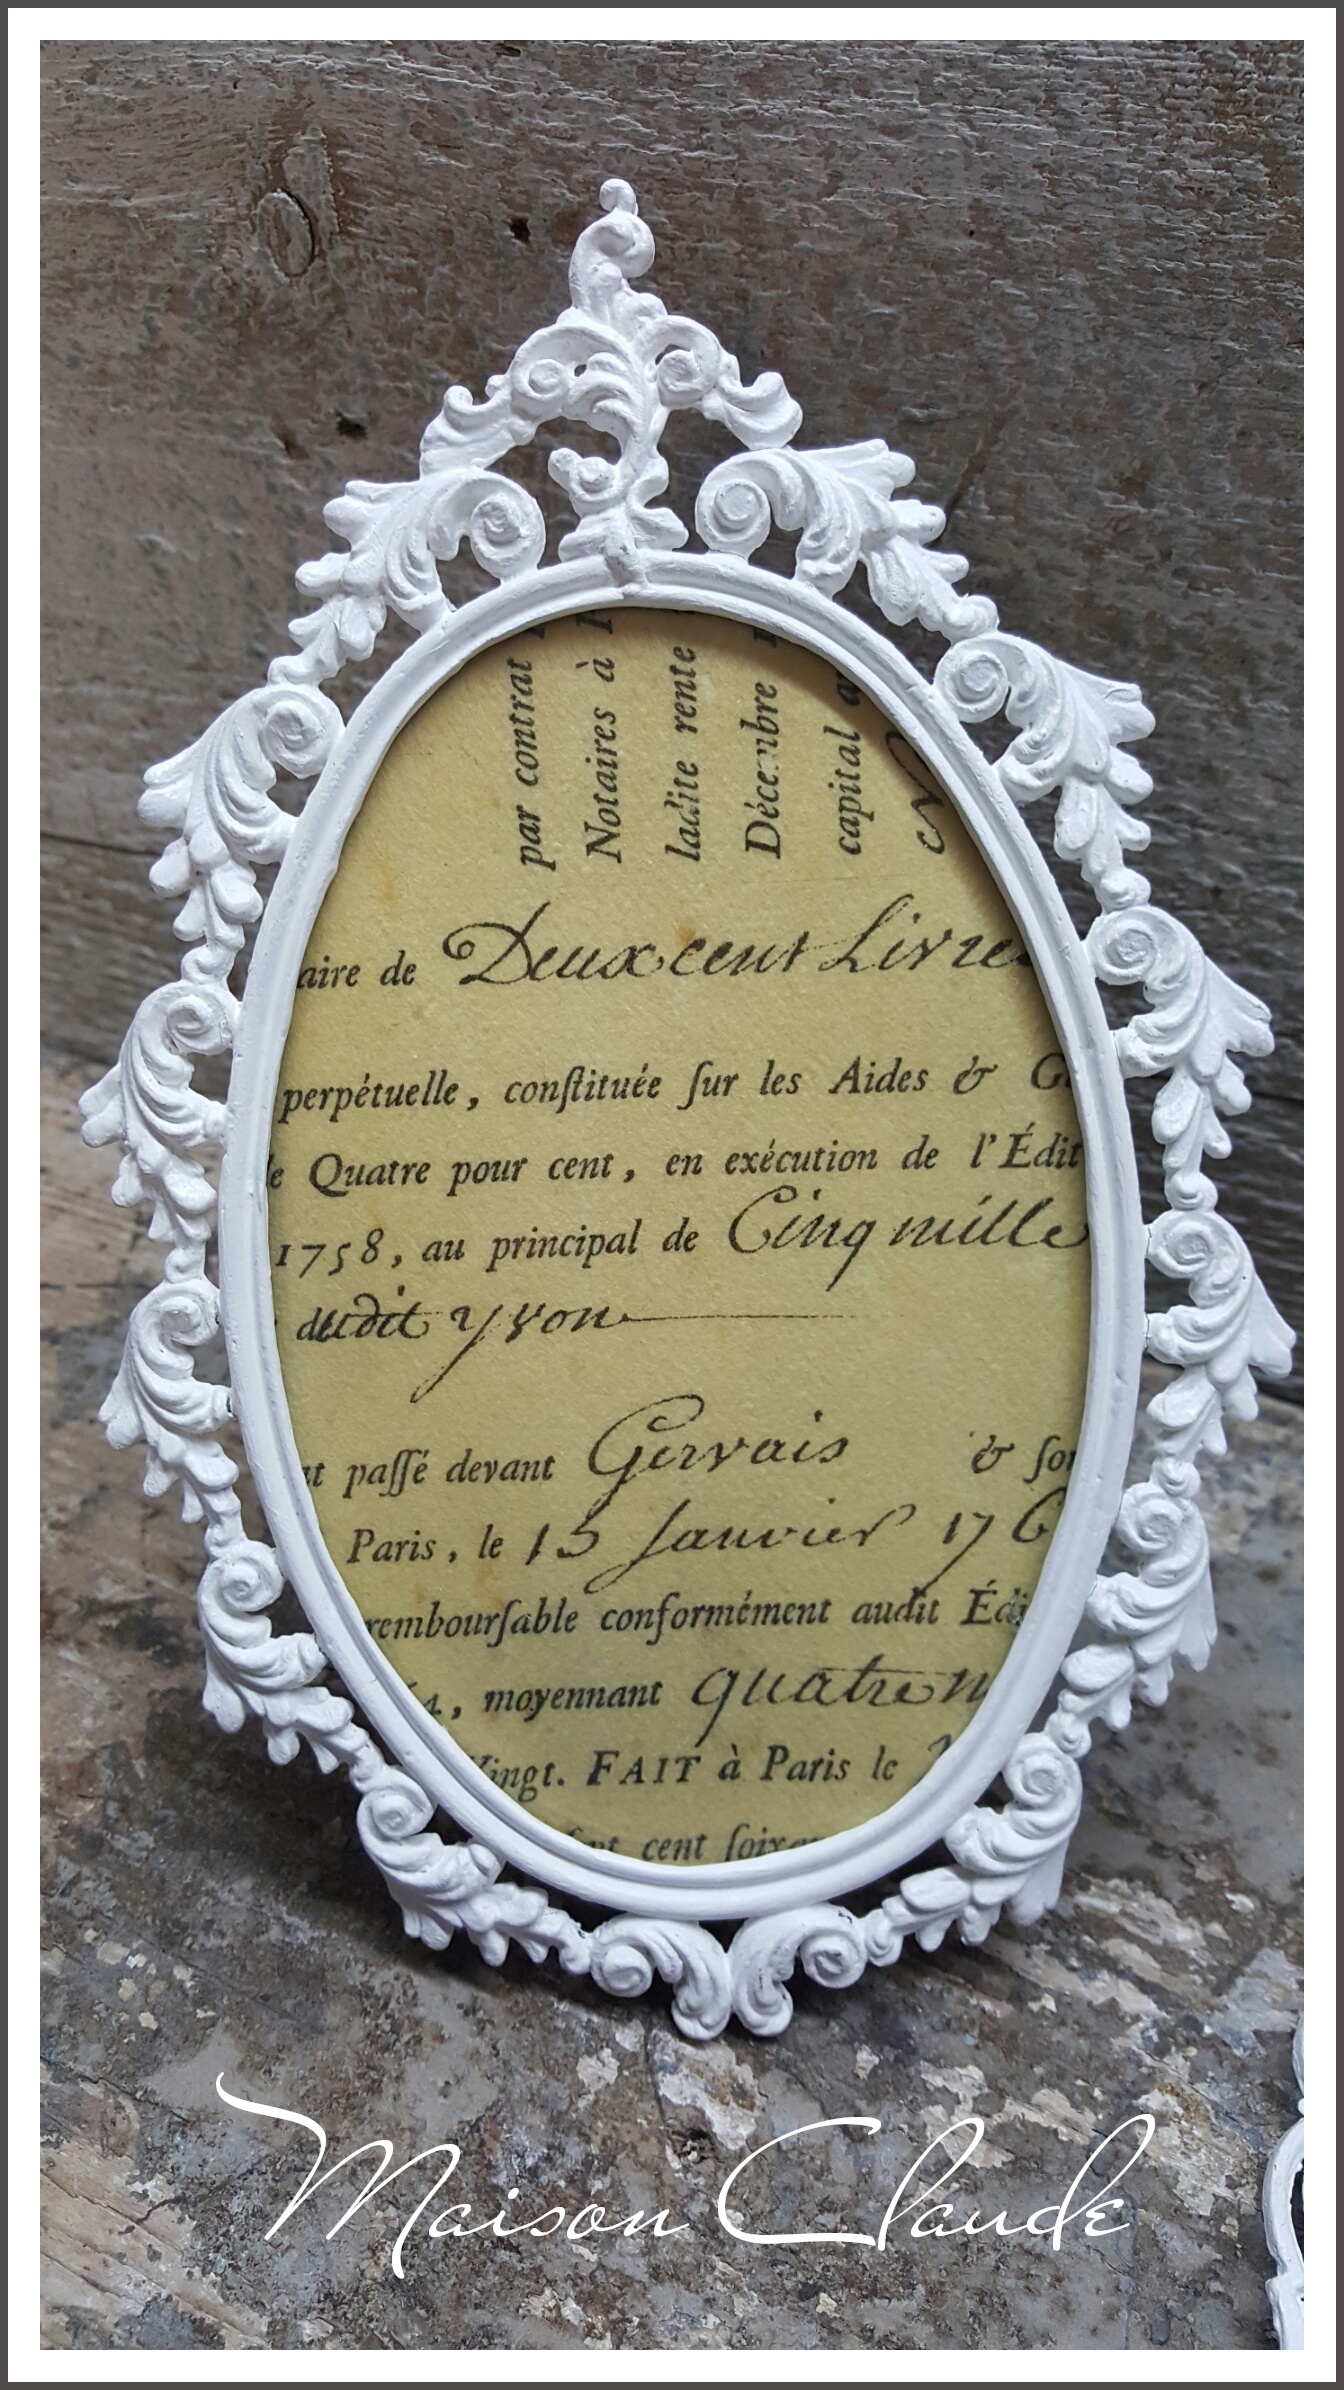 par contrat
Notaires à
ladite rente
Décembre
capital
aire de Deux cent Livre
perpétuelle, conſtituée ſur les Aides & G
e Quatre pour cent, en exécution de l'Édit
1758, au principal de Cinq mille
dudit yvon
nt paſſé devant Gervais & ſon
Paris, le 15 Janvier 176
rembourſable conformément audit Édi
moyennant quatre m
Vingt. FAIT à Paris le
ſept cent ſoixa
Maison Claude